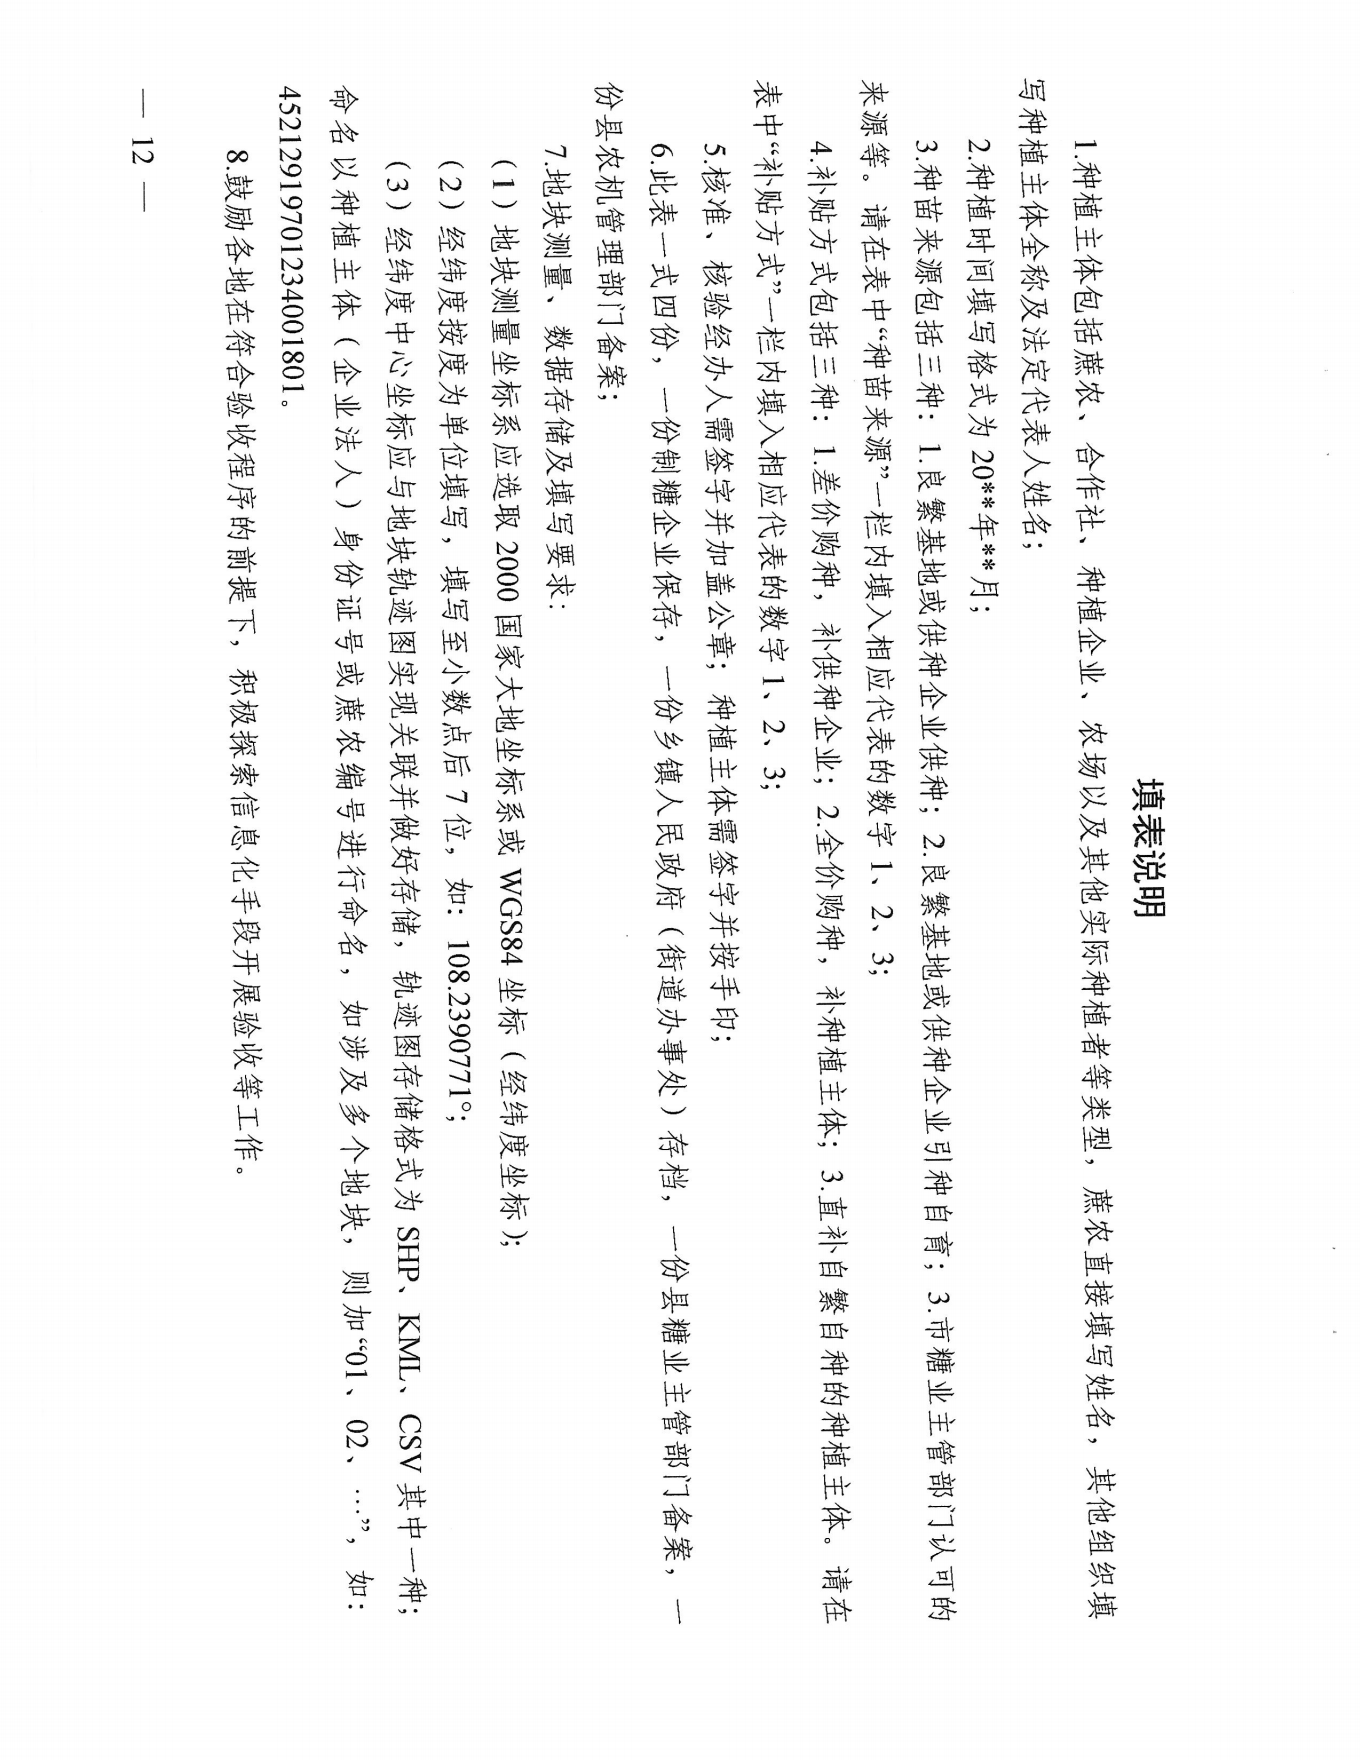 填表说明
1.种植主体包括蔗农、合作社、种植企业、农场以及其他实际种植者等类型，蔗农直接填写姓名，其他组织填
写种植主体全称及法定代表人姓名；
2.种植时间填写格式为 20**年**月；
3.种苗来源包括三种：1.良繁基地或供种企业供种；2.良繁基地或供种企业引种自育；3.市糖业主管部门认可的
来源等。请在表中“种苗来源”一栏内填入相应代表的数字 1、2、3；
4.补贴方式包括三种：1.差价购种，补供种企业；2.全价购种，补种植主体；3.直补自繁自种的种植主体。请在
表中“补贴方式”一栏内填入相应代表的数字 1、2、3；
5.核准、核验经办人需签字并加盖公章；种植主体需签字并按手印；
6.此表一式四份，一份制糖企业保存，一份乡镇人民政府（街道办事处）存档，一份县糖业主管部门备案，一
份县农机管理部门备案；
7.地块测量、数据存储及填写要求：
（1）地块测量坐标系应选取 2000 国家大地坐标系或 WGS84 坐标（经纬度坐标）；
（2）经纬度按度为单位填写，填写至小数点后 7 位，如：108.2390771°；
（3）经纬度中心坐标应与地块轨迹图实现关联并做好存储，轨迹图存储格式为 SHP、KML、CSV 其中一种；
命名以种植主体（企业法人）身份证号或蔗农编号进行命名，如涉及多个地块，则加“01、02、…”，如：
45212919701234001801。
8.鼓励各地在符合验收程序的前提下，积极探索信息化手段开展验收等工作。
— 12 —